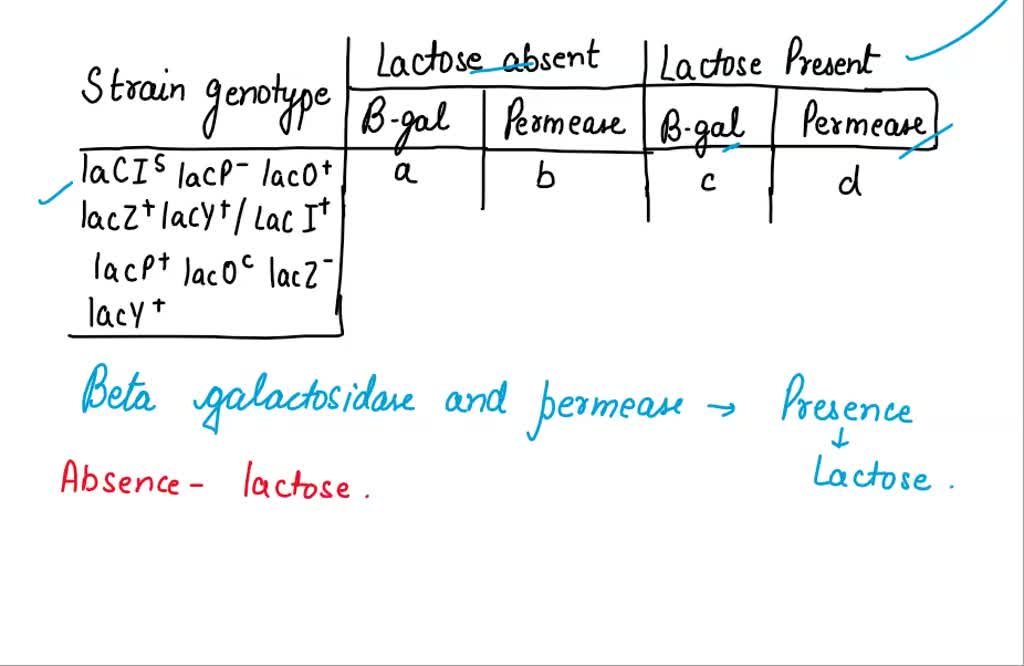 Strain genotype Lactose absent Lactose Present
B-gal Permease B-gal Permease
lacI^s lacP^- lacO^+ a b c d
lacZ^+ lacY^+ / Lac I^+
lacP^+ lacO^c lacZ^-
lacY^+
Beta galactosidase and permease → Presence
↓
Absence - lactose. Lactose.